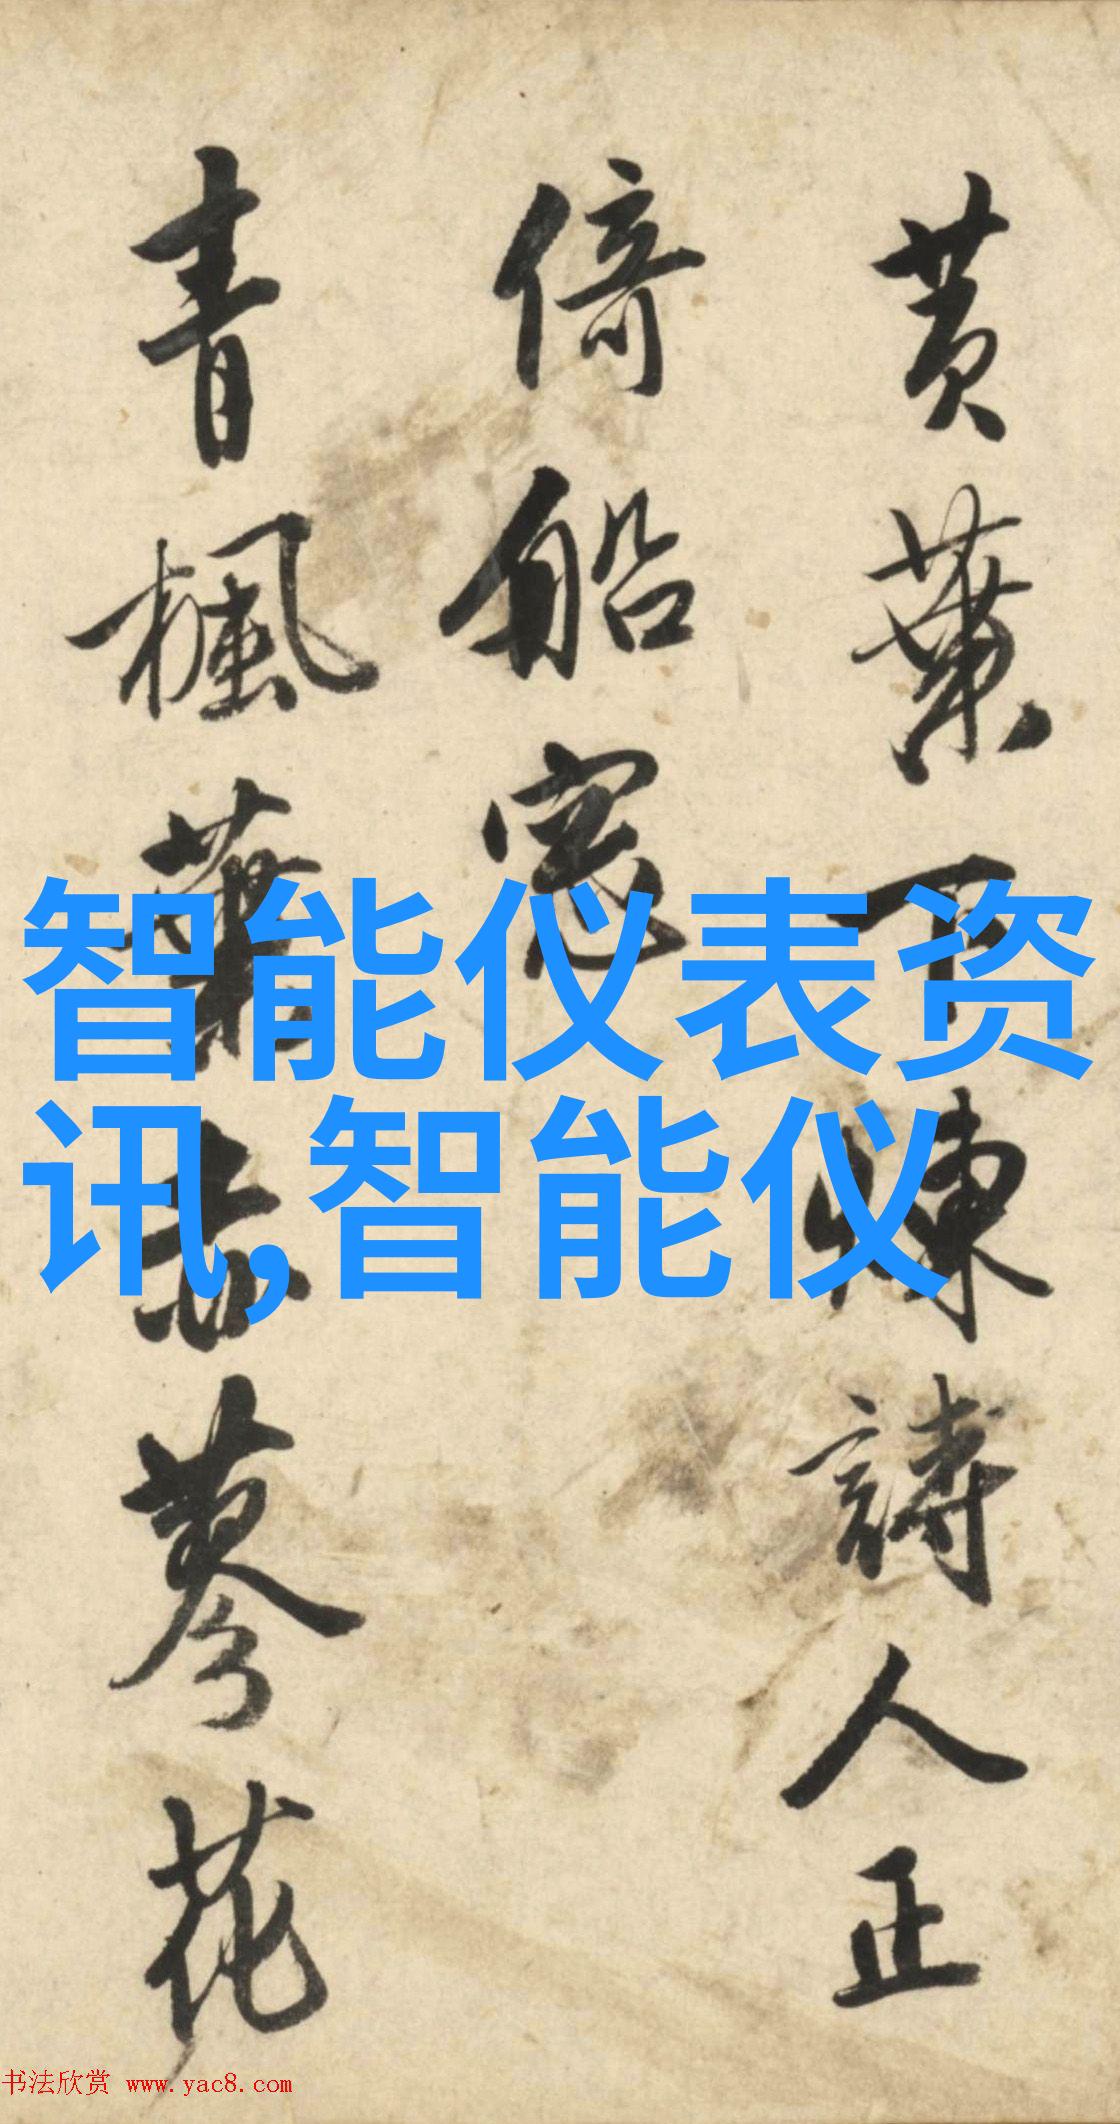 黄葉下楝詩人正
倚船窓
青楓葉赤蓼花
智能仪表资
讯,智能仪
书法欣赏 www.yac8.com